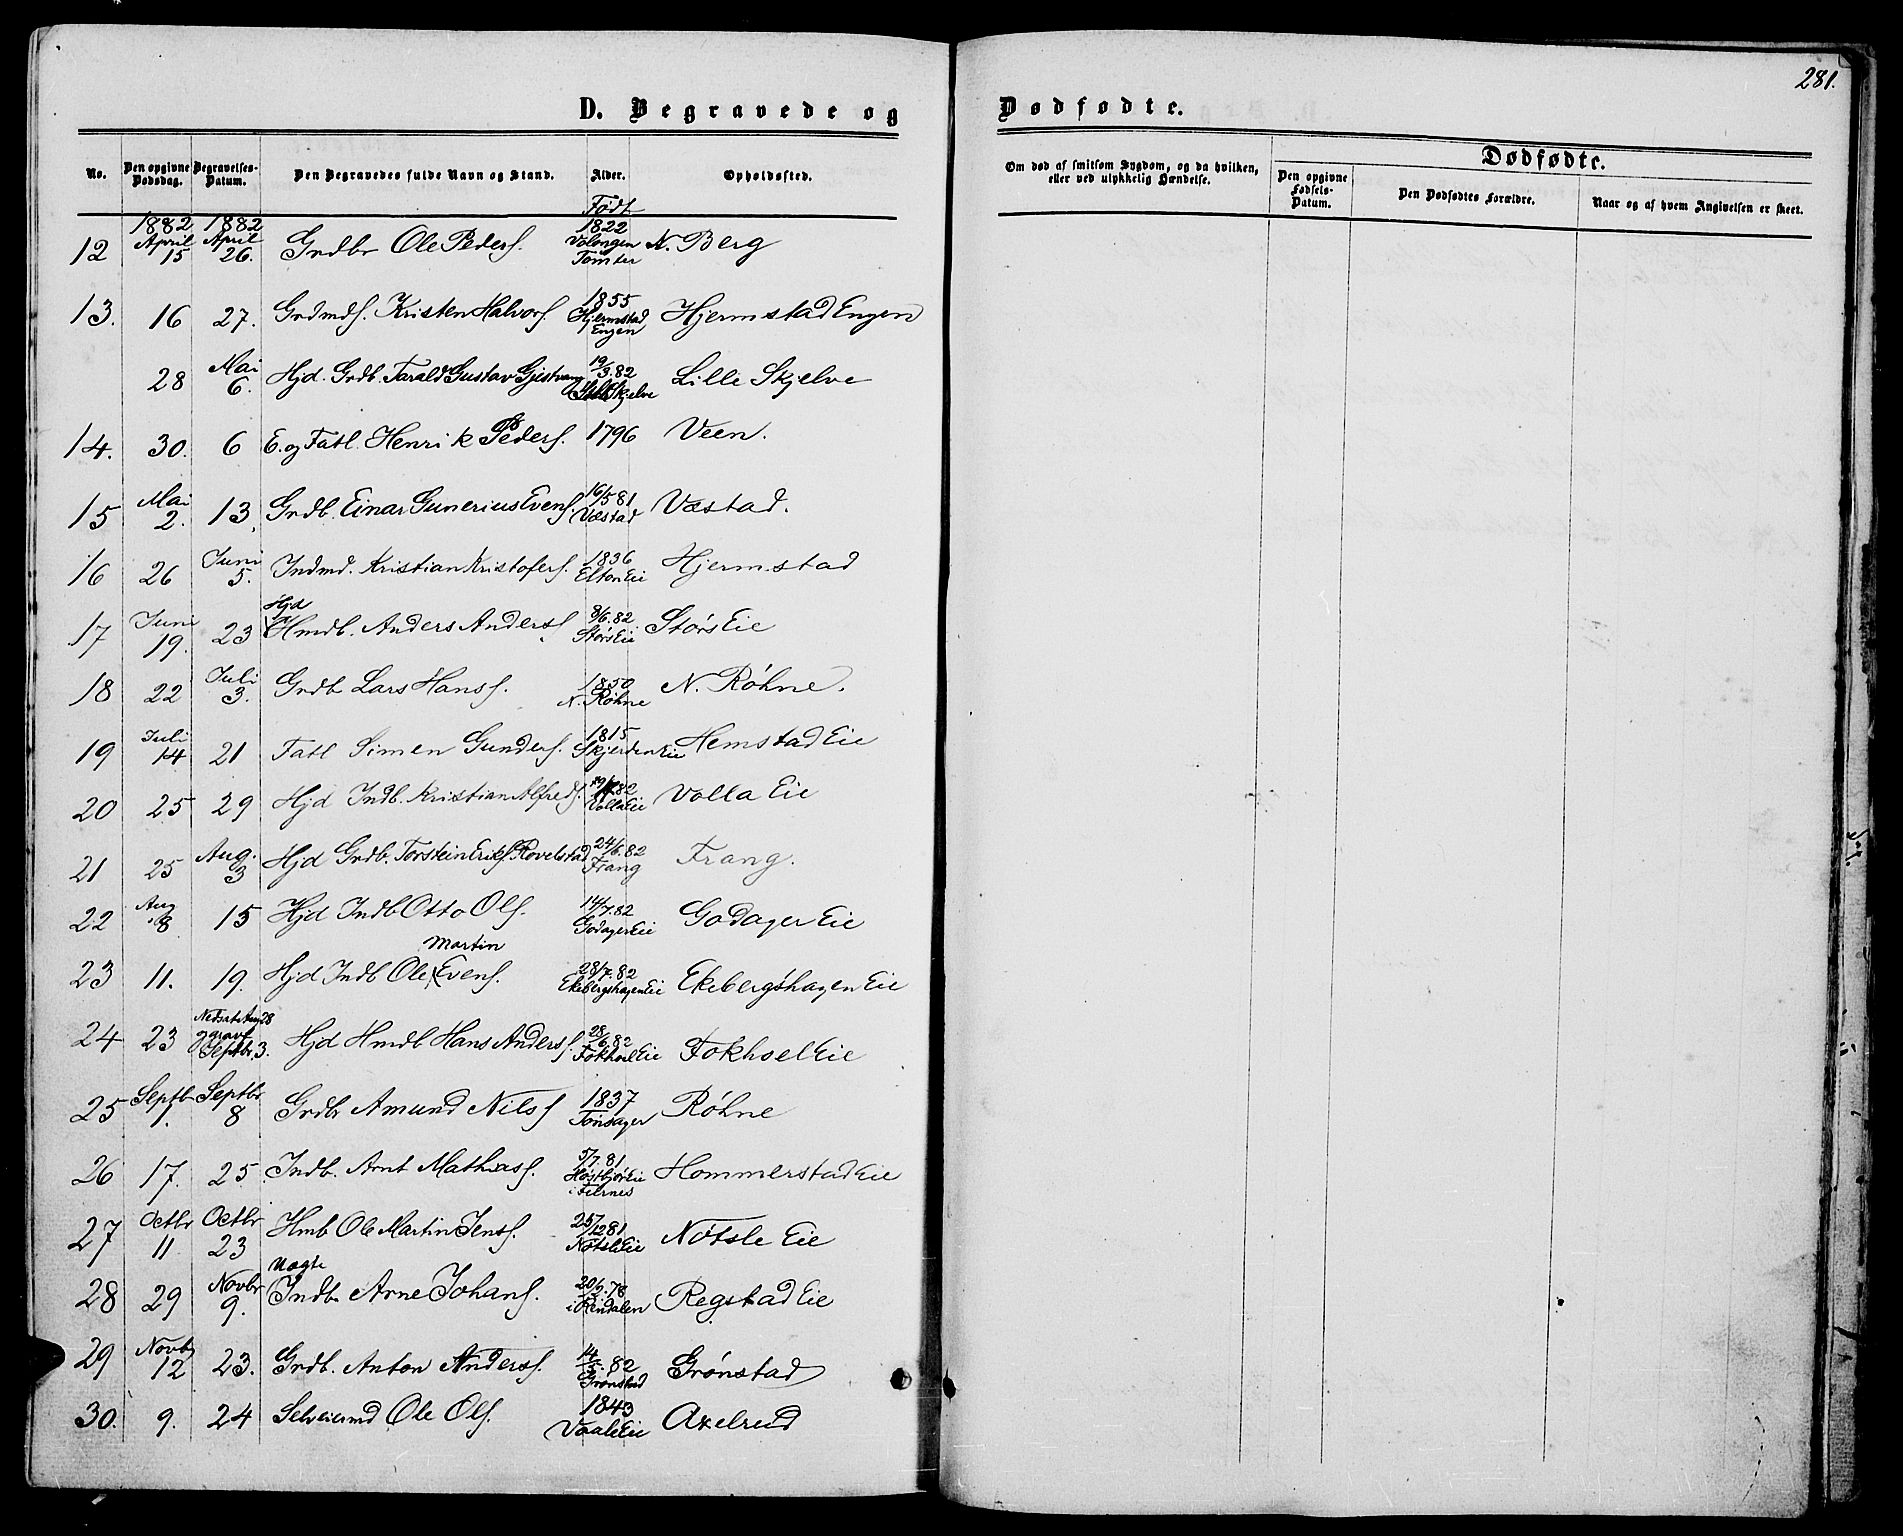 281.
D. Begravede og Dødfødte.
No. Den opgivne Dødsdag. Begravelses-Datum. Den Begravedes fulde Navn og Stand. Alder. Opholdssted.
Om død af smitsom Sygdom, og da hvilken, eller ved ulykkelig Hændelse.
Dødfødte.
Den opgivne Fødsels-Datum. Den Dødfødtes Forældre. Naar og af hvem Angivelsen er skeet.
Født
12 1882 April 15 1882 April 26. Grdbr Ole Peders. 1822 Tomter N. Berg
13. 16 27. Grdmds. Kristen Halvors 1855 Hjermstad Engen Hjermstad Engen
28 Mai 6. Hjd. Grdb. Tarald Gustav Gjestvang 19/3.82 Lille Skjelve Lille Skjelve
14. 30. 6 E. og Fatl. Henrik Peders. 1796 Veen.
15 Mai 2. 13, Grdb. Einar Gunerius Evens. 16/5 81 Væstad Væstad.
16 26 Juni 5. Indmd. Kristian Kristofers. 1836 Elton Eie Hjermstad
17 Juni 19. 23 Hjd Hmdb. Anders Anders 8/6.82 Størs Eie Størs Eie
18 22 Juli 3. Grdb Lars Hans. 1850 N. Røhne N. Røhne.
19 Juli 14 21 Fatl Simen Gunders. 1815 Skjerden Eie Hemstad Eie
20 25 29 Hjd Indb. Kristian Alfreds. 82 Volla Eie Volla Eie
21 25 Aug. 3 Hjd Grdb. Torstein Eriks. Rovelstad 24/6.82 Frang Frang.
22 Aug 8 15 Hjd Indb Otto Ols. 14/7.82 Godager Eie Godager Eie
23 11. 19. Hjd Indb Ole Martin Evens. 28/7.82 Ekebergshagen Eie Ekebergshagen Eie
24 23 Nedsat Aug 28 gravf Septbr. 3. Hjd Hmdb Hans Anders. 28/6.82 Fokhsel Eie Fokhsel Eie
25 Septbr 1. Septbr 8 Grdbr Amund Nils 1837 Tønsager Røhne
26 17. 25 Indb. Arnt Mathias. 5/7 81 Høstbjør Eie i Furnes Hommerstad Eie
27 Octbr 11 Octbr 23 Hmb Ole Martin Jens. 25/12 81 Nøtsle Eie Nøtsle Eie
28 29 Novbr 9. Uægte Indb. Arne Johans. 78 i Rendalen Regstad Eie
29 Novbr 12 23. Grdb. Anton Anders. 14 82 Grønstad Grønstad
30. 9. 24 Selveiermd Ole Ols. 1843 Vaale Eie Axelrud